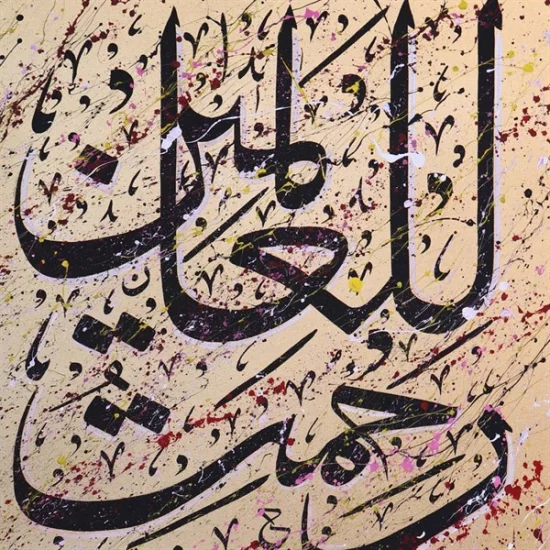 رحمت
للعالمين